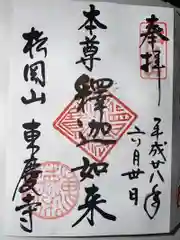 奉拝
平成廿八年
六月廿日
本尊釋迦如来
松岡山東慶寺